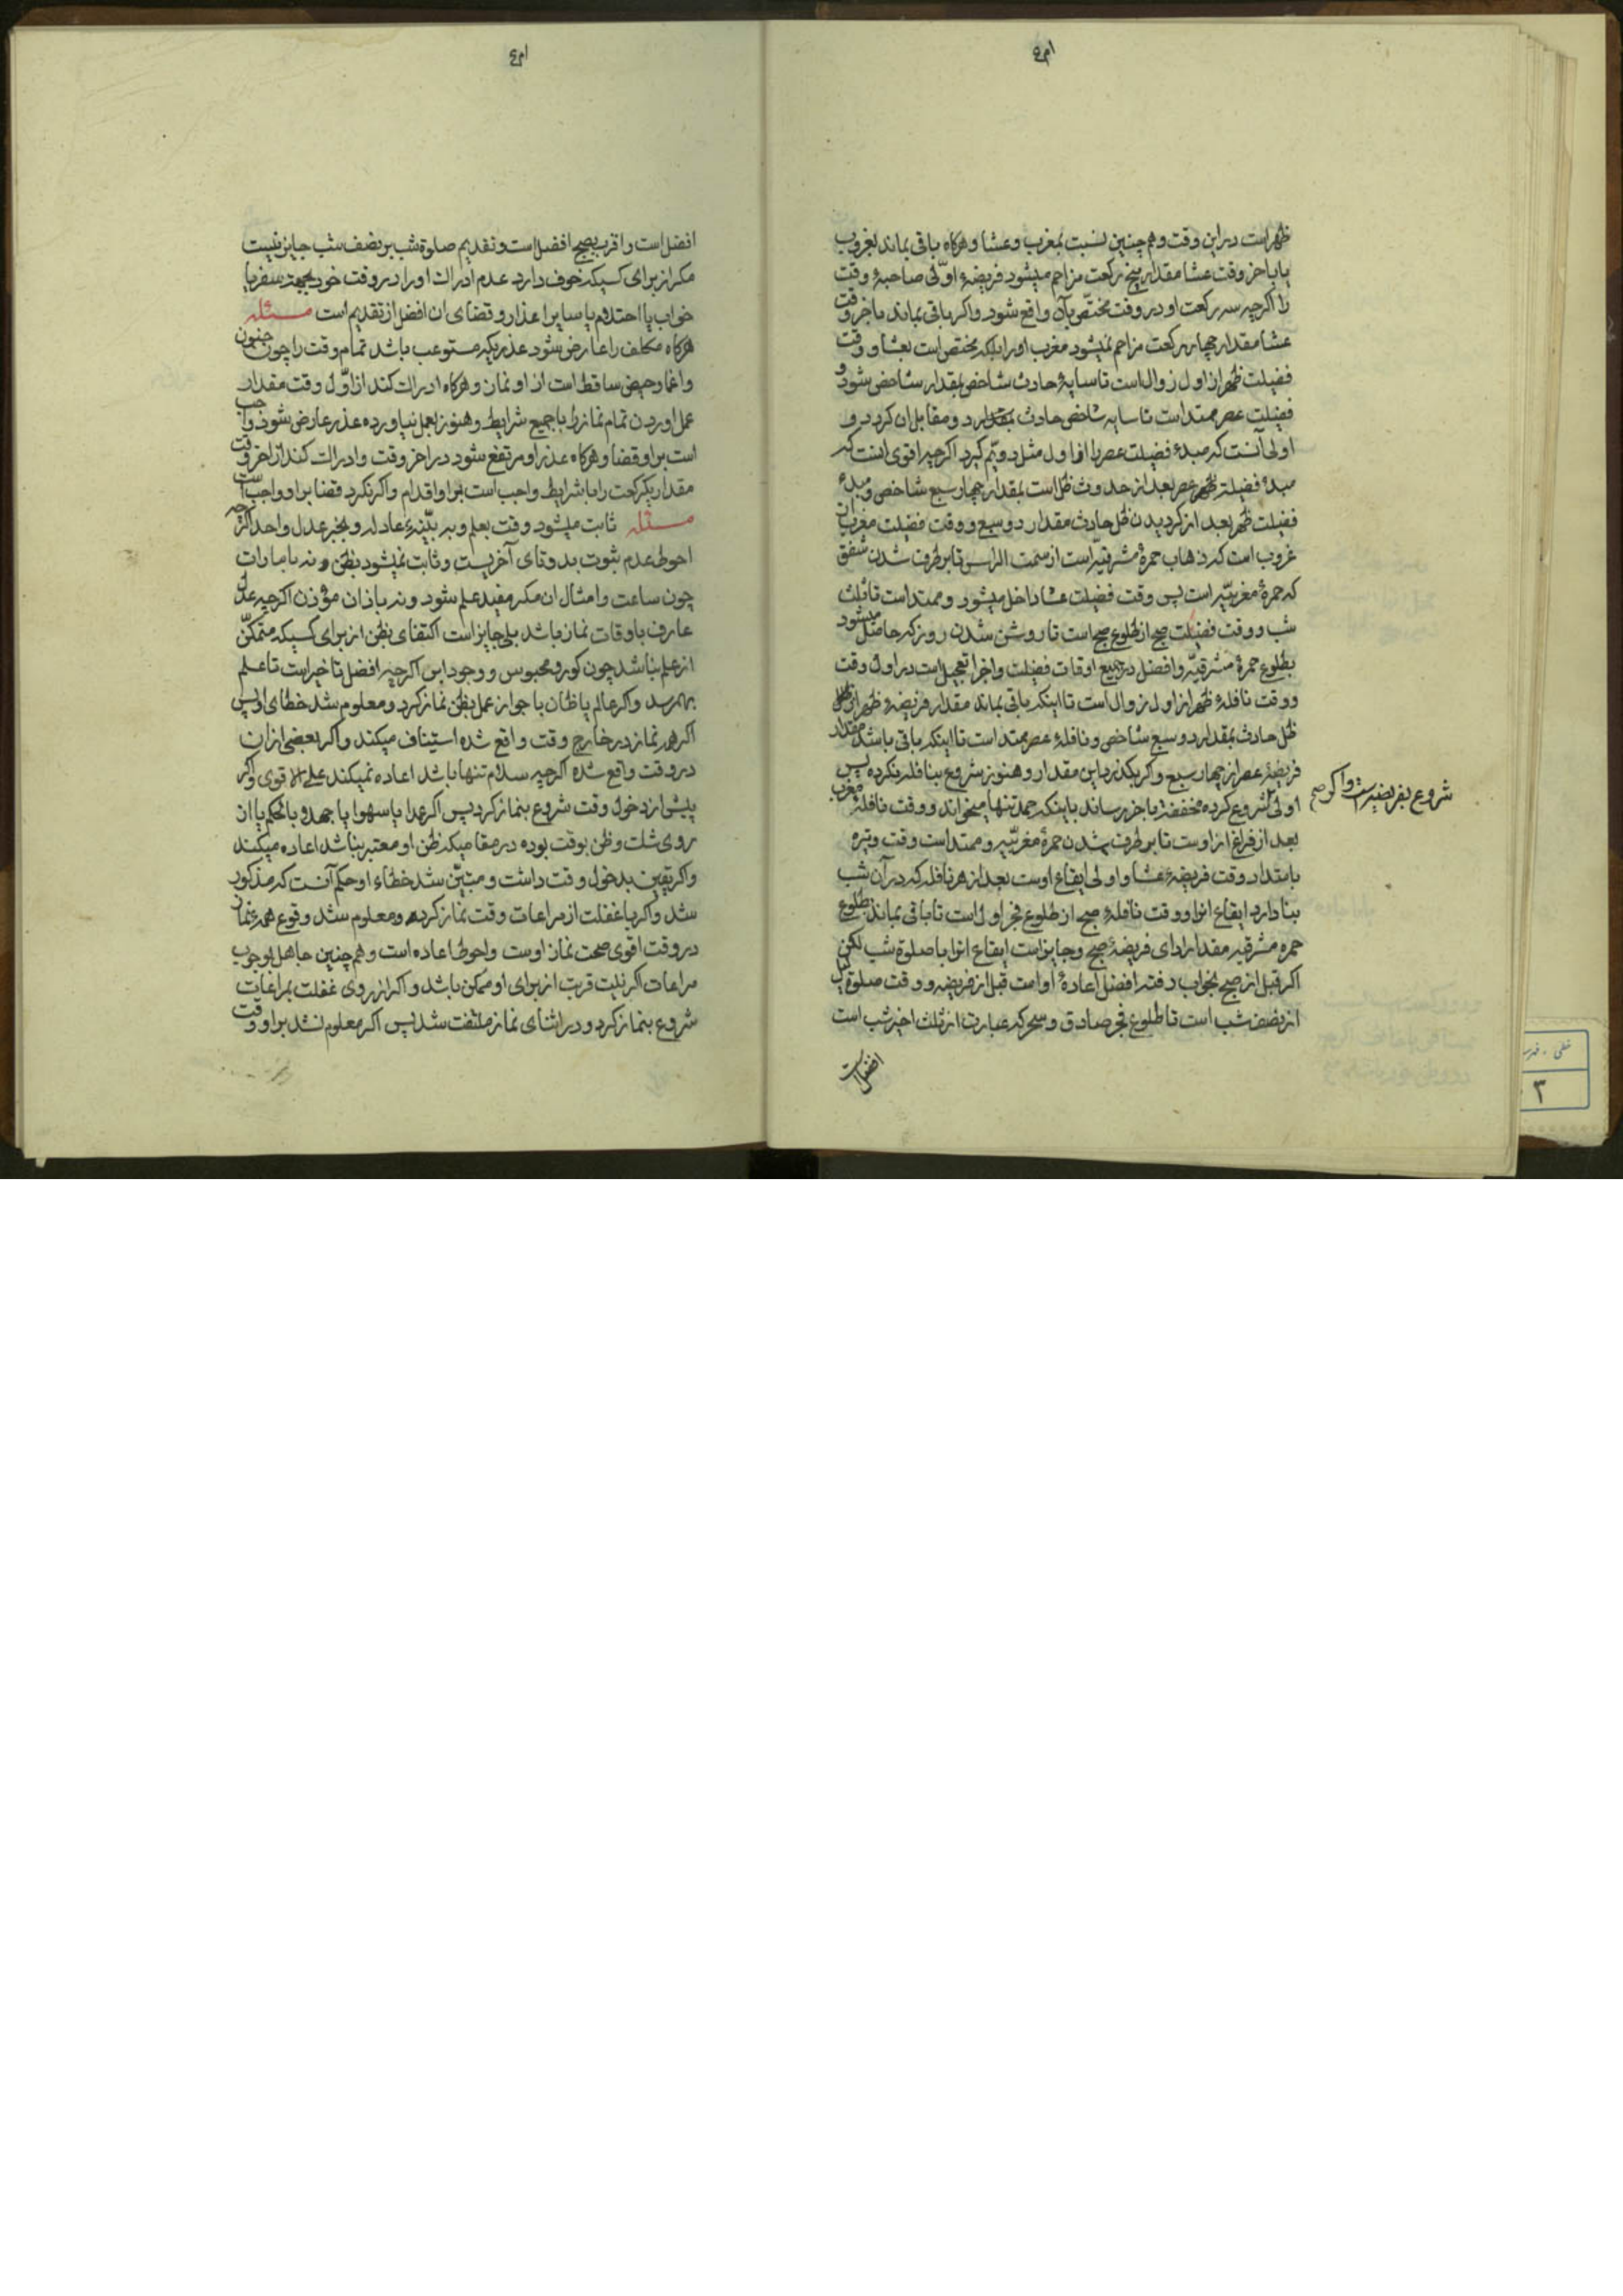 ظهر است در این وقت و هم چنین نسبت بمغرب و عشا و هرکاه باقی بماند بغروب
یا باخر وقت عشا مقدار پنج رکعت مزاحم میشود فریضهٔ اولی صاحبهٔ وقت
را اکرچه سه رکعت او در وقت مختص بآن واقع شود و اکر باقی بماند باخر وقت
عشا مقدار چهار رکعت مزاحم نمیشود مغرب او را بلکه مختص است بعشا و وقت
فضیلت ظهر از اول زوال است تا سایهٔ حادث شاخص بمقدار شاخص شود و
فضیلت عصر ممتد است تا سایه شاخص حادث بمقدار دو مقابل ان کردد و
اولی آنست که مبدء فضیلت عصر را از اول مثل دویم کیرد اکرچه اقوی انست که
مبدء فضیلت عصر بعد از حدوث ظل است بمقدار چهار سبع شاخص و مبدء
فضیلت ظهر بعد از کردیدن ظل حادث مقدار دو سبع و وقت فضیلت مغرب از
غروب است که ذهاب حمرهٔ مشرقیه است از سمت الراس تا برطرف شدن شفق
که حمرهٔ مغربیه است پس وقت فضیلت عشا داخل میشود و ممتد است تا ثلث
شب و وقت فضیلت صبح از طلوع صبح است تا روشن شدن روز که حاصل میشود
بطلوع حمرهٔ مشرقیه و افضل در جمیع اوقات فضیلت و اجزا تعجیل است در اول وقت
و وقت نافلهٔ ظهر از اول زوال است تا اینکه باقی بماند مقدار فریضهٔ ظهر از
ظل حادث بمقدار دو سبع شاخص و نافلهٔ عصر ممتد است تا اینکه باقی باشد مقدار
فریضهٔ عصر از چهار سبع و اکر بکذرد این مقدار و هنوز شروع بنافله نکرده پس
اولی شروع بفریضه است و اکر
شروع کرده مخففة باخر رساند باینکه حمد تنها میخواند و وقت نافلهٔ مغرب
بعد از فراغ از اوست تا برطرف شدن حمرهٔ مغربیه و ممتد است وقت وتیره
بامتداد وقت فریضهٔ عشا و اولی ایقاع اوست بعد از هر نافله که در آن شب
بنا دارد ایقاع انرا و وقت نافلهٔ صبح از طلوع فجر اول است تا باقی بماند بطلوع
حمره مشرقیه مقدار ادای فریضهٔ صبح و جایز است ایقاع انرا با صلوة شب لکن
اکر قبل از صبح بخواب رفته افضل اعادهٔ اوامت قبل از فریضه و وقت صلوة لیل
از نصف شب است تا طلوع فجر صادق و سحر که عبارت از ثلث اخیر شب است
افضل است
افضل است و اقرب بصبح افضل است و تقدیم صلوة شب بر نصف شب جایز نیست
مکر از برای کسیکه خوف دارد عدم ادراک او را در وقت خود بجهة سفر یا
خواب یا احتلام یا سایر اعذار و قضای ان افضل از تقدیم است مسئله
هرکاه مکلف را عارض شود عذریکه مستوعب باشد تمام وقت را چون جنون
و اغما و حیض ساقط است از او نماز و هرکاه ادراک کند از اول وقت مقدار
عمل اوردن تمام نماز را با جمیع شرایط و هنوز بعمل نیاورده عذر عارض شود واجب
است بر او قضا و هرکاه عذر او مرتفع شود در اخر وقت و ادراک کند از اخر وقت
مقدار یکرکعت را با شرایط واجب است بر او اقدام و اکر نکرد قضا بر او واجب است
مسئله ثابت میشود وقت بعلم و به بینهٔ عادله و بخبر عدل واحد اکرچه
احوط عدم ثبوت بدوتای آخریست و ثابت نمیشود بظن و نه بامارات
چون ساعت و امثال ان مکر مفید علم شود و نه باذان مؤذن اکرچه عدل
عارف باوقات نماز باشد بلی جایز است اکتفای بظن از برای کسیکه متمکن
از علم نباشد چون کور و محبوس و وجود ابر اکرچه افضل تاخیر است تا علم
بهمرسد و اکر عالم یا ظان با جواز عمل بظن نماز کرد و معلوم شد خطای او پس
اکر همه نماز در خارج وقت واقع شده استیناف میکند و اکر بعضی از ان
در وقت واقع شده اکرچه سلام تنها باشد اعاده نمیکند علی الاقوی و اکر
پیش از دخول وقت شروع بنماز کرد پس اکر عمدا یا سهوا یا جهلا بالحکم یا از
روی شک و ظن بوقت بوده در مقامیکه ظن او معتبر نباشد اعاده میکند
و اکر یقین بدخول وقت داشت و مبین شد خطاء او حکم آنست که مذکور
شد و اکر با غفلت از مراعات وقت نماز کرده و معلوم شد وقوع همهٔ نماز
در وقت اقوی صحت نماز اوست و احوط اعاده است و هم چنین جاهل بوجوب
مراعات اکر نیت قربت از برای او ممکن باشد و اکر از روی غفلت بمراعات
شروع بنماز کرد و در اثنای نماز ملتفت شد پس اکر معلوم نشد بر او وقت